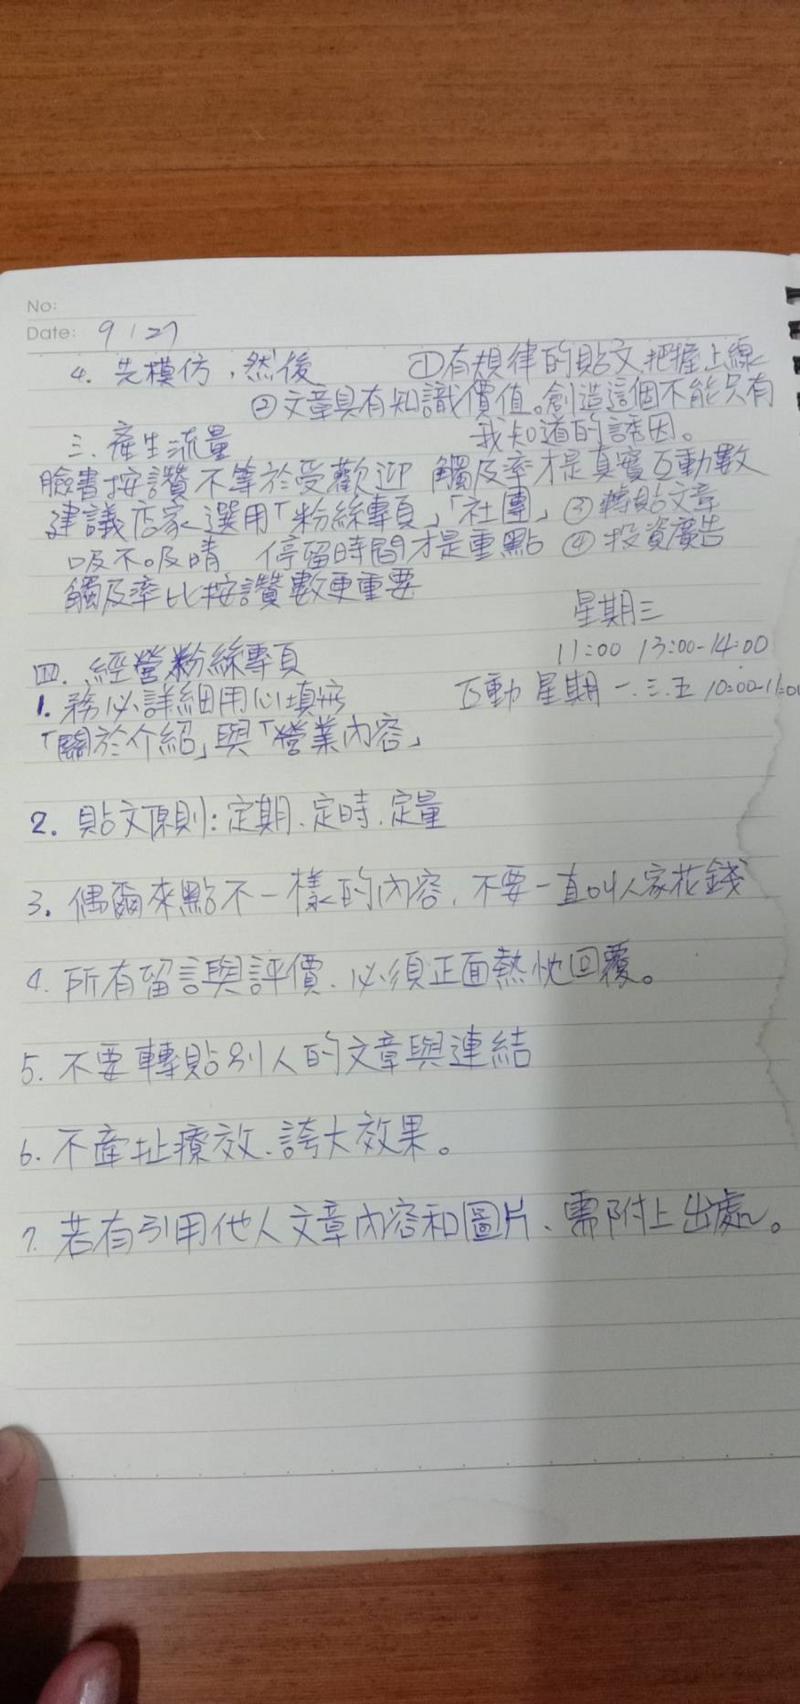 No:
Date: 9 / 27
4. 先模仿，然後 ①有規律的貼文.把握上線
②文章具有知識價值。創造這個不能只有
三. 產生流量 我知道的誘因。
臉書按讚不等於受歡迎 觸及率才是真實互動數
建議店家選用「粉絲專頁」「社團」 ③轉貼文章
吸不吸睛 停留時間才是重點 ④投資廣告
觸及率比按讚數更重要
星期三
11:00 13:00-14:00
四. 經營粉絲專頁
互動 星期一.三.五 10:00-11:00
1. 務必詳細用心填寫
「關於介紹」與「營業內容」
2. 貼文原則: 定期、定時、定量
3. 偶爾來點不一樣的內容，不要一直叫人家花錢
4. 所有留言與評價、必須正面熱忱回覆。
5. 不要轉貼別人的文章與連結
6. 不牽扯療效、誇大效果。
7. 若有引用他人文章內容和圖片、需附上出處。